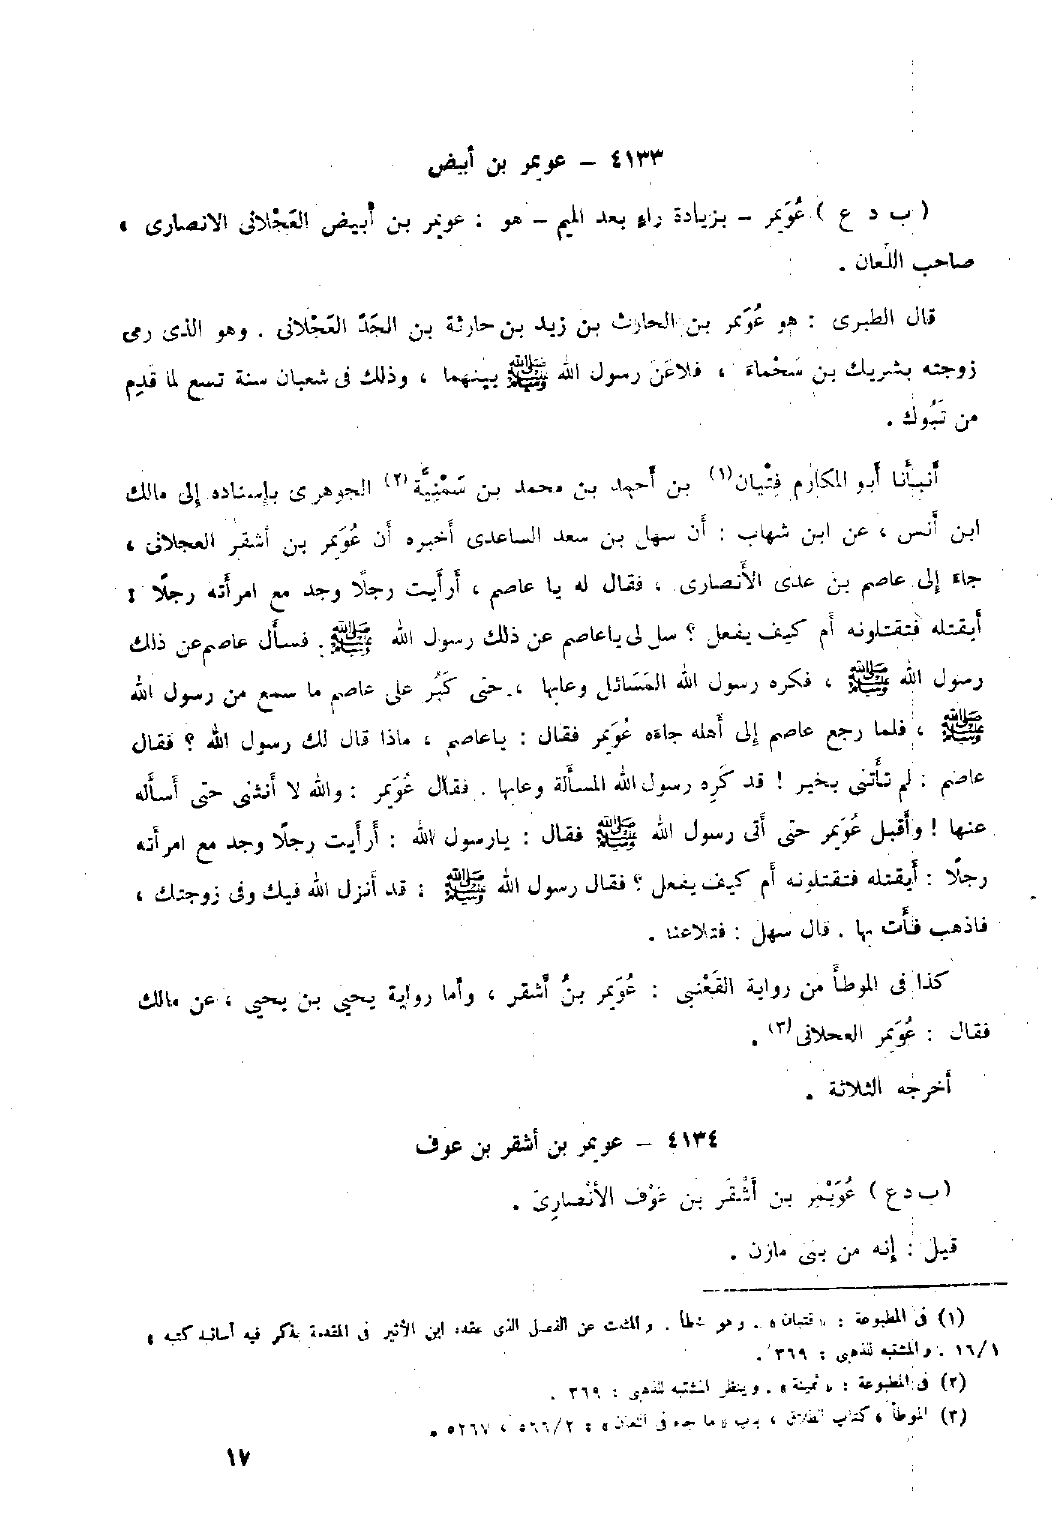 ٤١٣٣ – عويمر بن أبيض
( ب د ع ) عُوَيمر – بزيادة راءٍ بعد الميم – هو : عويمر بن أَبيض العَجْلانى الانصارى ،
صاحب اللِّعان .
قال الطبرى : هو عُوَيمر بن الحارث بن زيد بن حارثة بن الجَدّ العَجْلانى . وهو الذى رمى
زوجته بشريك بن سَحْماءَ ، فلاعَنَ رسول الله ﷺ بينهما ، وذلك فى شعبان سنة تسع لما قدِم
من تَبُوك .
أَنبأَنا أَبو المكارم فِتْيان(١) بن أَحمد بن محمد بن سَمْنِيَّة(٢) الجوهرى بإِسناده إِلى مالك
ابن أَنس ، عن ابن شهاب : أَن سهل بن سعد الساعدى أَخبره أَن عُوَيمر بن أَشقر العجلانى ،
جاءَ إِلى عاصم بن عدى الأَنصارى ، فقال له يا عاصم ، أَرأَيت رجلًا وجد مع امرأَته رجلًا :
أَيقتله فتقتلونه أَم كيف يفعل ؟ سل لى ياعاصم عن ذلك رسول الله ﷺ . فسأَل عاصم عن ذلك
رسول الله ﷺ ، فكره رسول الله المَسَائل وعابها ، حتى كَبُر على عاصم ما سمع من رسول الله
ﷺ ، فلما رجع عاصم إِلى أَهله جاءَه عُوَيمر فقال : ياعاصم ، ماذا قال لك رسول الله ؟ فقال
عاصم : لم تأْتنى بخير ! قد كَرِه رسول الله المسأَلة وعابها . فقال عُوَيمر : والله لا أَنثنى حتى أَسأَله
عنها ! وأَقبل عُوَيمر حتى أَتى رسول الله ﷺ فقال : يارسول الله : أَرأَيت رجلًا وجد مع امرأَته
رجلًا : أَيقتله فتقتلونه أَم كيف يفعل ؟ فقال رسول الله ﷺ : قد أَنزل الله فيك وفى زوجتك ،
فاذهب فأْت بها . قال سهل : فتلاعنا .
كذا فى الموطأ من رواية القَعْنبى : عُوَيمر بنُ أَشقر ، وأَما رواية يحيى بن يحيى ، عن مالك
فقال : عُوَيمر العجلانى(٣) .
أَخرجه الثلاثة .
٤١٣٤ – عويمر بن أشقر بن عوف
(ب د ع ) عُوَيْمِر بن أَشْقَر بن عَوْف الأَنْصارِىّ .
قيل : إِنه من بنى مازن .
(١) فى المطبوعة : « قتبان » . وهو خطأ . والمثبت عن الفصل الذى عقده ابن الأثير فى المقدمة يذكر فيه أسانيد كتبه ،
١٦/١ . والمشتبه للذهبى : ٣٦٩ .
(٢) فى المطبوعة : « ثمينة » . وينظر المشتبه للذهبى : ٣٦٩ .
(٣) الموطأ ، كتاب الطلاق ، باب « ما جاء فى اللعان » : ٥٦٦/٢ ، ٥٢٦٧ .
١٧